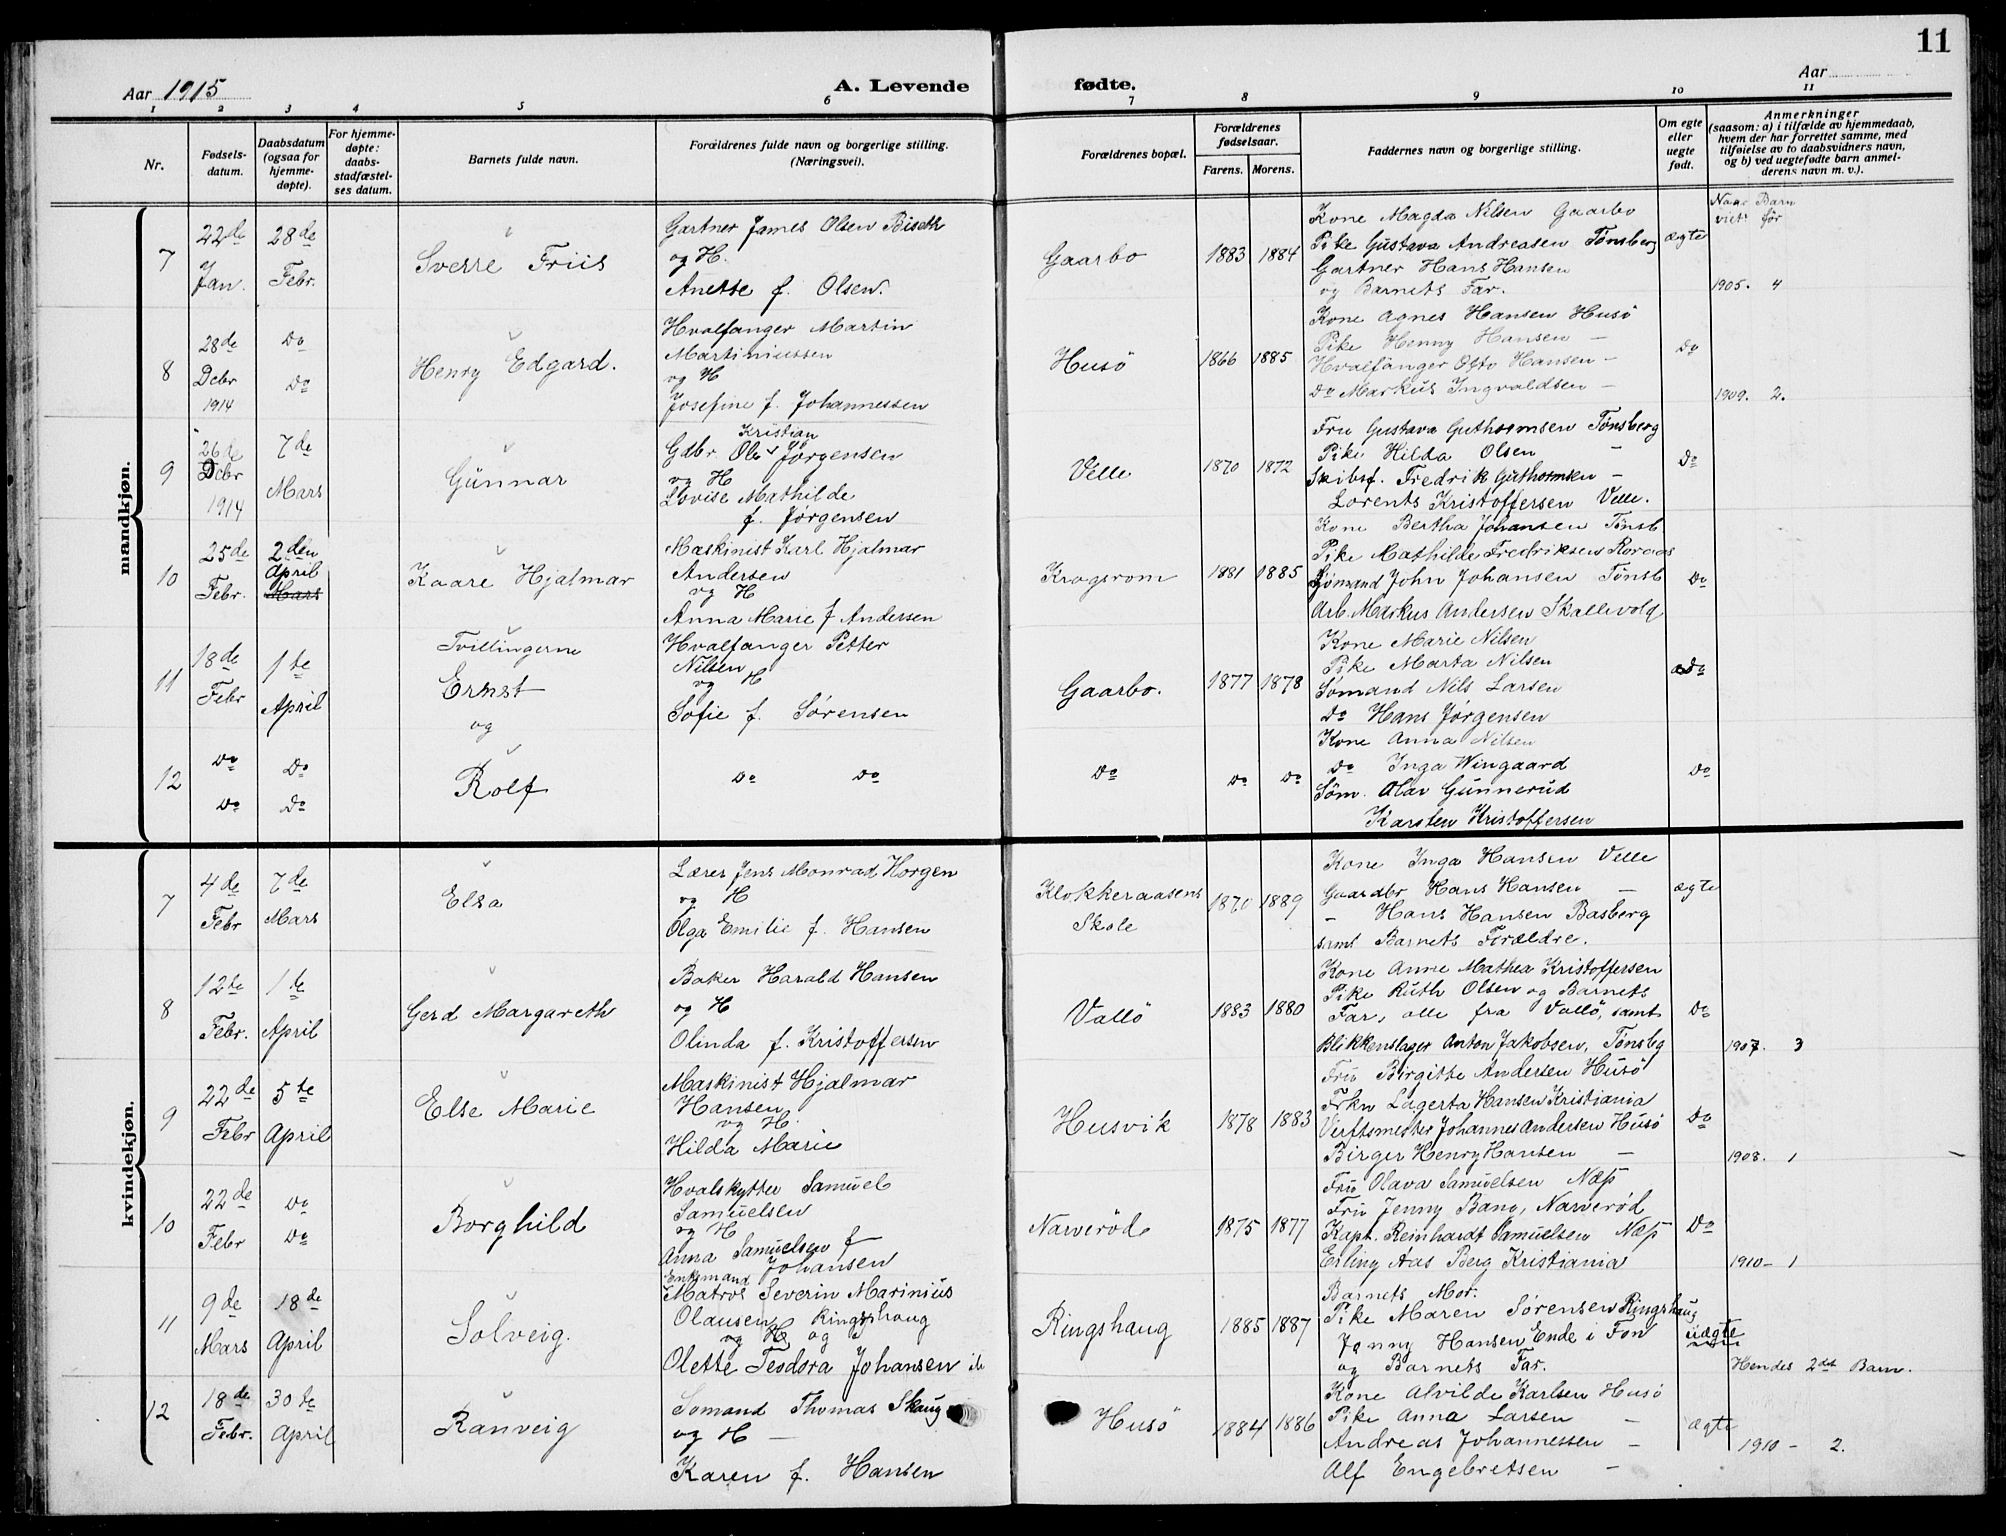 11
Aar 1915
A. Levende fødte.
Aar
1 2 3 4 5 6 7 8 9 10 11
Nr.
Fødsels-
datum.
Daabsdatum
(ogsaa for
hjemme-
døpte).
For hjemme-
døpte:
daabs-
stadfæstel-
ses datum.
Barnets fulde navn.
Forældrenes fulde navn og borgerlige stilling.
(Næringsvei).
Forældrenes bopæl.
Forældrenes
fødselsaar.
Farens. Morens.
Faddernes navn og borgerlige stilling.
Om egte
eller
uegte
født.
Anmerkninger
(saasom: a) i tilfælde av hjemmedaab,
hvem der har forrettet samme, med
tilføielse av to daabsvidners navn,
og b) ved uegtefødte barn anmel-
derens navn m. v.).
Naar Barn
viet før
mandkjøn.
7
22de
Jan.
28de
Febr.
Sverre Friis
Gartner James Olsen Biseth
og H.
Anette f. Olsen.
Gaarbo
1883 1884
Kone Magda Nilsen Gaarbo
Pike Gustava Andreasen Tønsberg
Gartner Hans Hansen
og Barnets Far.
ægte
1905. 4
8
28de
Debr
1914
Do
Do
Henry Edgard.
Hvalfanger Martin
Martiniussen
og H
Josefine f. Johannessen
Husö
1866 1885
Kone Agnes Hansen Husö
Pike Henny Hansen —
Hvalfanger Otto Hansen —
Do Markus Ingvaldsen —
Do
1909. 2.
9
26de
Debr
1914
7de
Mars
Gunnar
Kristian
Gdbr Ole Jørgensen
og H
Lovise Mathilde
f. Jørgensen
Velle
1870 1872
Fru Gustava Guthormsen Tønsberg
Pike Hilda Olsen —
Skibsf. Fredrik Guthormsen —
Lorents Kristoffersen Velle.
Do
10
25de
Febr.
2den
April
Mars
Kaare Hjalmar
Maskinist Karl Hjalmar
Andersen
og H
Anna Marie f Andersen
Krogsrom
1881 1885
Kone Bertha Johansen Tønsb
Pike Mathilde Fredriksen Roraas
Sjömand John Johansen Tønsb
Arb. Markus Andersen Skallevold
Do
11
18de
Febr
1te
April
Tvillingerne
Ernst
og
Hvalfanger Petter
Nilsen
og H
Sofie f. Sørensen
Gaarbo.
1877 1878
Kone Marie Nilsen
Pike Marta Nilsen
Sømand Nils Larsen
Do Hans Jørgensen
Do
12
Do
Do
Do
Do
Rolf
Do Do
Do
Do Do
Kone Anna Nilsen
Do Inga Wingaard
Søm. Olav Gunnerud
Karsten Kristoffersen
Do
kvindekjøn.
7
4de
Febr
7de
Mars
Elsa
Lærer Jens Monrad Horgen
og H
Olga Emilie f. Hansen
Klokkeraasens
Skole
1870 1889
Kone Inga Hansen Velle
Gaardbr Hans Hansen —
— Hans Hansen Basberg
samt Barnets Forældre.
ægte
8
12te
Febr.
1te
April
Gerd Margareth
Baker Harald Hansen
og H
Olinda f. Kristoffersen
Vallö
1883 1880
Kone Anne Mathea Kristoffersen
Pike Ruth Olsen og Barnets
Far, alle fra Vallö, samt
Blikkenslager Anton Jakobsen, Tønsbg
Do
1907. 3
9
22de
Febr
5te
April
Else Marie
Maskinist Hjalmar
Hansen
og H.
Hilda Marie
Husvik
1878 1883
Fru Birgitte Andersen Husö
Frkn Lagerta Hansen Kristiania
Verftsmester Johannes Andersen Husö
Birger Henry Hansen —
Do
1908. 1
10
22de
Febr
Do
Do
Borghild
Hvalskytter Samuel
Samuelsen
og H
Anna Samuelsen f
Johansen
Narverød
1875 1877
Fru Olava Samuelsen Næs
Fru Jenny Bang, Narverød
Kapt. Reinhardt Samuelsen Næs
Erling Aas Berg Kristiania
Do
1910 — 1
11
9de
Mars
18de
April
Solveig.
Enkemand
Matros Severin Marinius
Olausen Ringshaug
og H og
Olette Teodora Johansen
Ringshaug
1885 1887
Barnets Mor.
Pike Maren Sørensen Ringshaug
Jonny Hansen Ende i Fon
og Barnets Far.
uægte
Hendes 2det Barn.
12
18de
Febr.
30te
April
Ranveig
Somand Thomas Skaug
og H —
Karen f. Hansen
Husö
1884 1886
Kone Alvilde Karlsen Husö
Pike Anna Larsen —
Andreas Johannessen —
Alf Engebretsen —
ægte
1910 — 2.